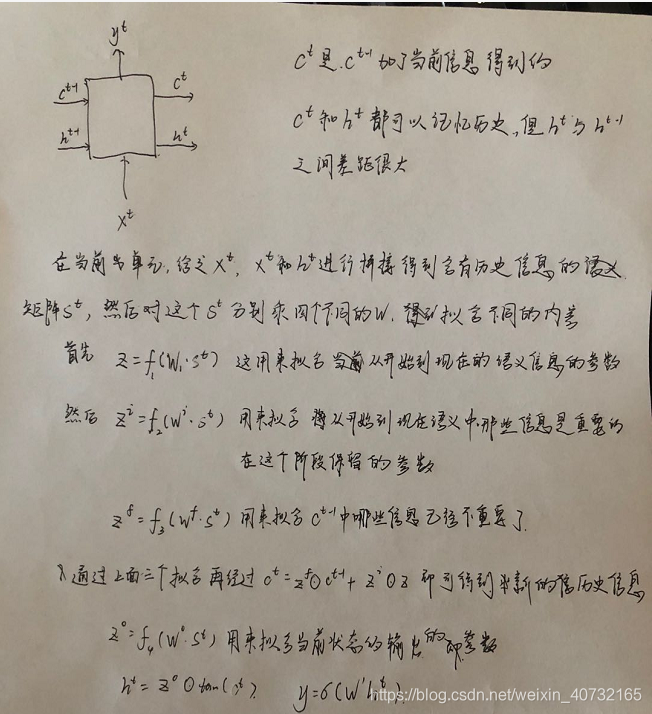 y^t
c^{t-1}
c^t
h^{t-1}
h^t
x^t
c^t是c^{t-1}加了当前信息得到的
c^t和h^t都可以记忆历史,但h^t与h^{t-1}
之间差距很大
在当前单元,给定x^t,x^t和h^t进行拼接得到含有历史信息的语义
矩阵s^t,然后对这个s^t分别乘四个不同的W.得到拟合不同的内容
首先 z=f₁(W₁·s^t) 这用来拟合当前从开始到现在的语义信息的参数
然后 z^i=f₂(W^i·s^t) 用来拟合将从开始到现在语义中哪些信息是重要的
在这个阶段保留的参数
z^f=f₃(W^f·s^t) 用来拟合c^{t-1}中哪些信息已经不重要了
通过上面三个拟合再经过c^t=z^f⊙c^{t-1}+z^i⊙z 即可得到新的历史信息
z^o=f₄(W^o·s^t) 用来拟合当前状态的输出的参数
h^t=z^o⊙tan(c^t) y=σ(W'h^t)
https://blog.csdn.net/weixin_40732165